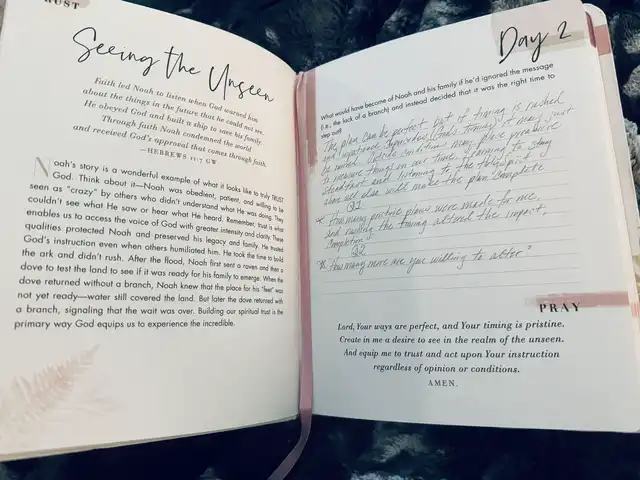 RUST
Seeing the Unseen
Faith led Noah to listen when God warned him
about the things in the future that he could not see.
He obeyed God and built a ship to save his family.
Through faith Noah condemned the world
and received God's approval that comes through faith.
—HEBREWS 11:7 GW
Noah's story is a wonderful example of what it looks like to truly TRUST
God. Think about it—Noah was obedient, patient, and willing to be
seen as "crazy" by others who didn't understand what He was doing. They
couldn't see what He saw or hear what He heard. Remember, trust is what
enables us to access the voice of God with greater intensity and clarity. These
qualities protected Noah and preserved his legacy and family. He trusted
God's instruction even when others humiliated him. He took the time to build
the ark and didn't rush. After the flood, Noah first sent a raven and then a
dove to test the land to see if it was ready for his family to emerge. When the
dove returned without a branch, Noah knew that the place for his "feet" was
not yet ready—water still covered the land. But later the dove returned with
a branch, signaling that the wait was over. Building our spiritual trust is the
primary way God equips us to experience the incredible.
Day 2
What would have become of Noah and his family if he'd ignored the message
(i.e., the lack of a branch) and instead decided that it was the right time to
step out?
The plan can be perfect but if timing is rushed
and God's timing it may just
be
to measure things in our time. Listening to stay
steadfast and listening to the Holy Spirit
alone will make the plan complete
Q1
* How many pristine plans were made for me,
and rushing the timing altered the impact,
completion.
Q2
* "How many more are you willing to alter"
PRAY
Lord, Your ways are perfect, and Your timing is pristine.
Create in me a desire to see in the realm of the unseen.
And equip me to trust and act upon Your instruction
regardless of opinion or conditions.
AMEN.